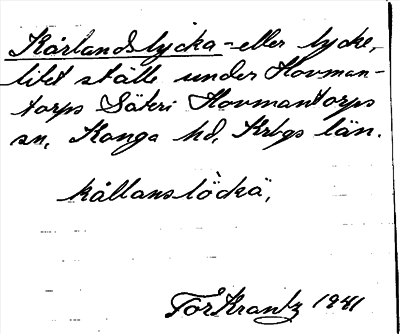 Kårlandslycka - eller lycke,
litet ställe under Hovman-
torps Säteri Hovmantorps
sn, Konga hd, Krbgs län.
kållanslöckä,
Tor Krantz 1941